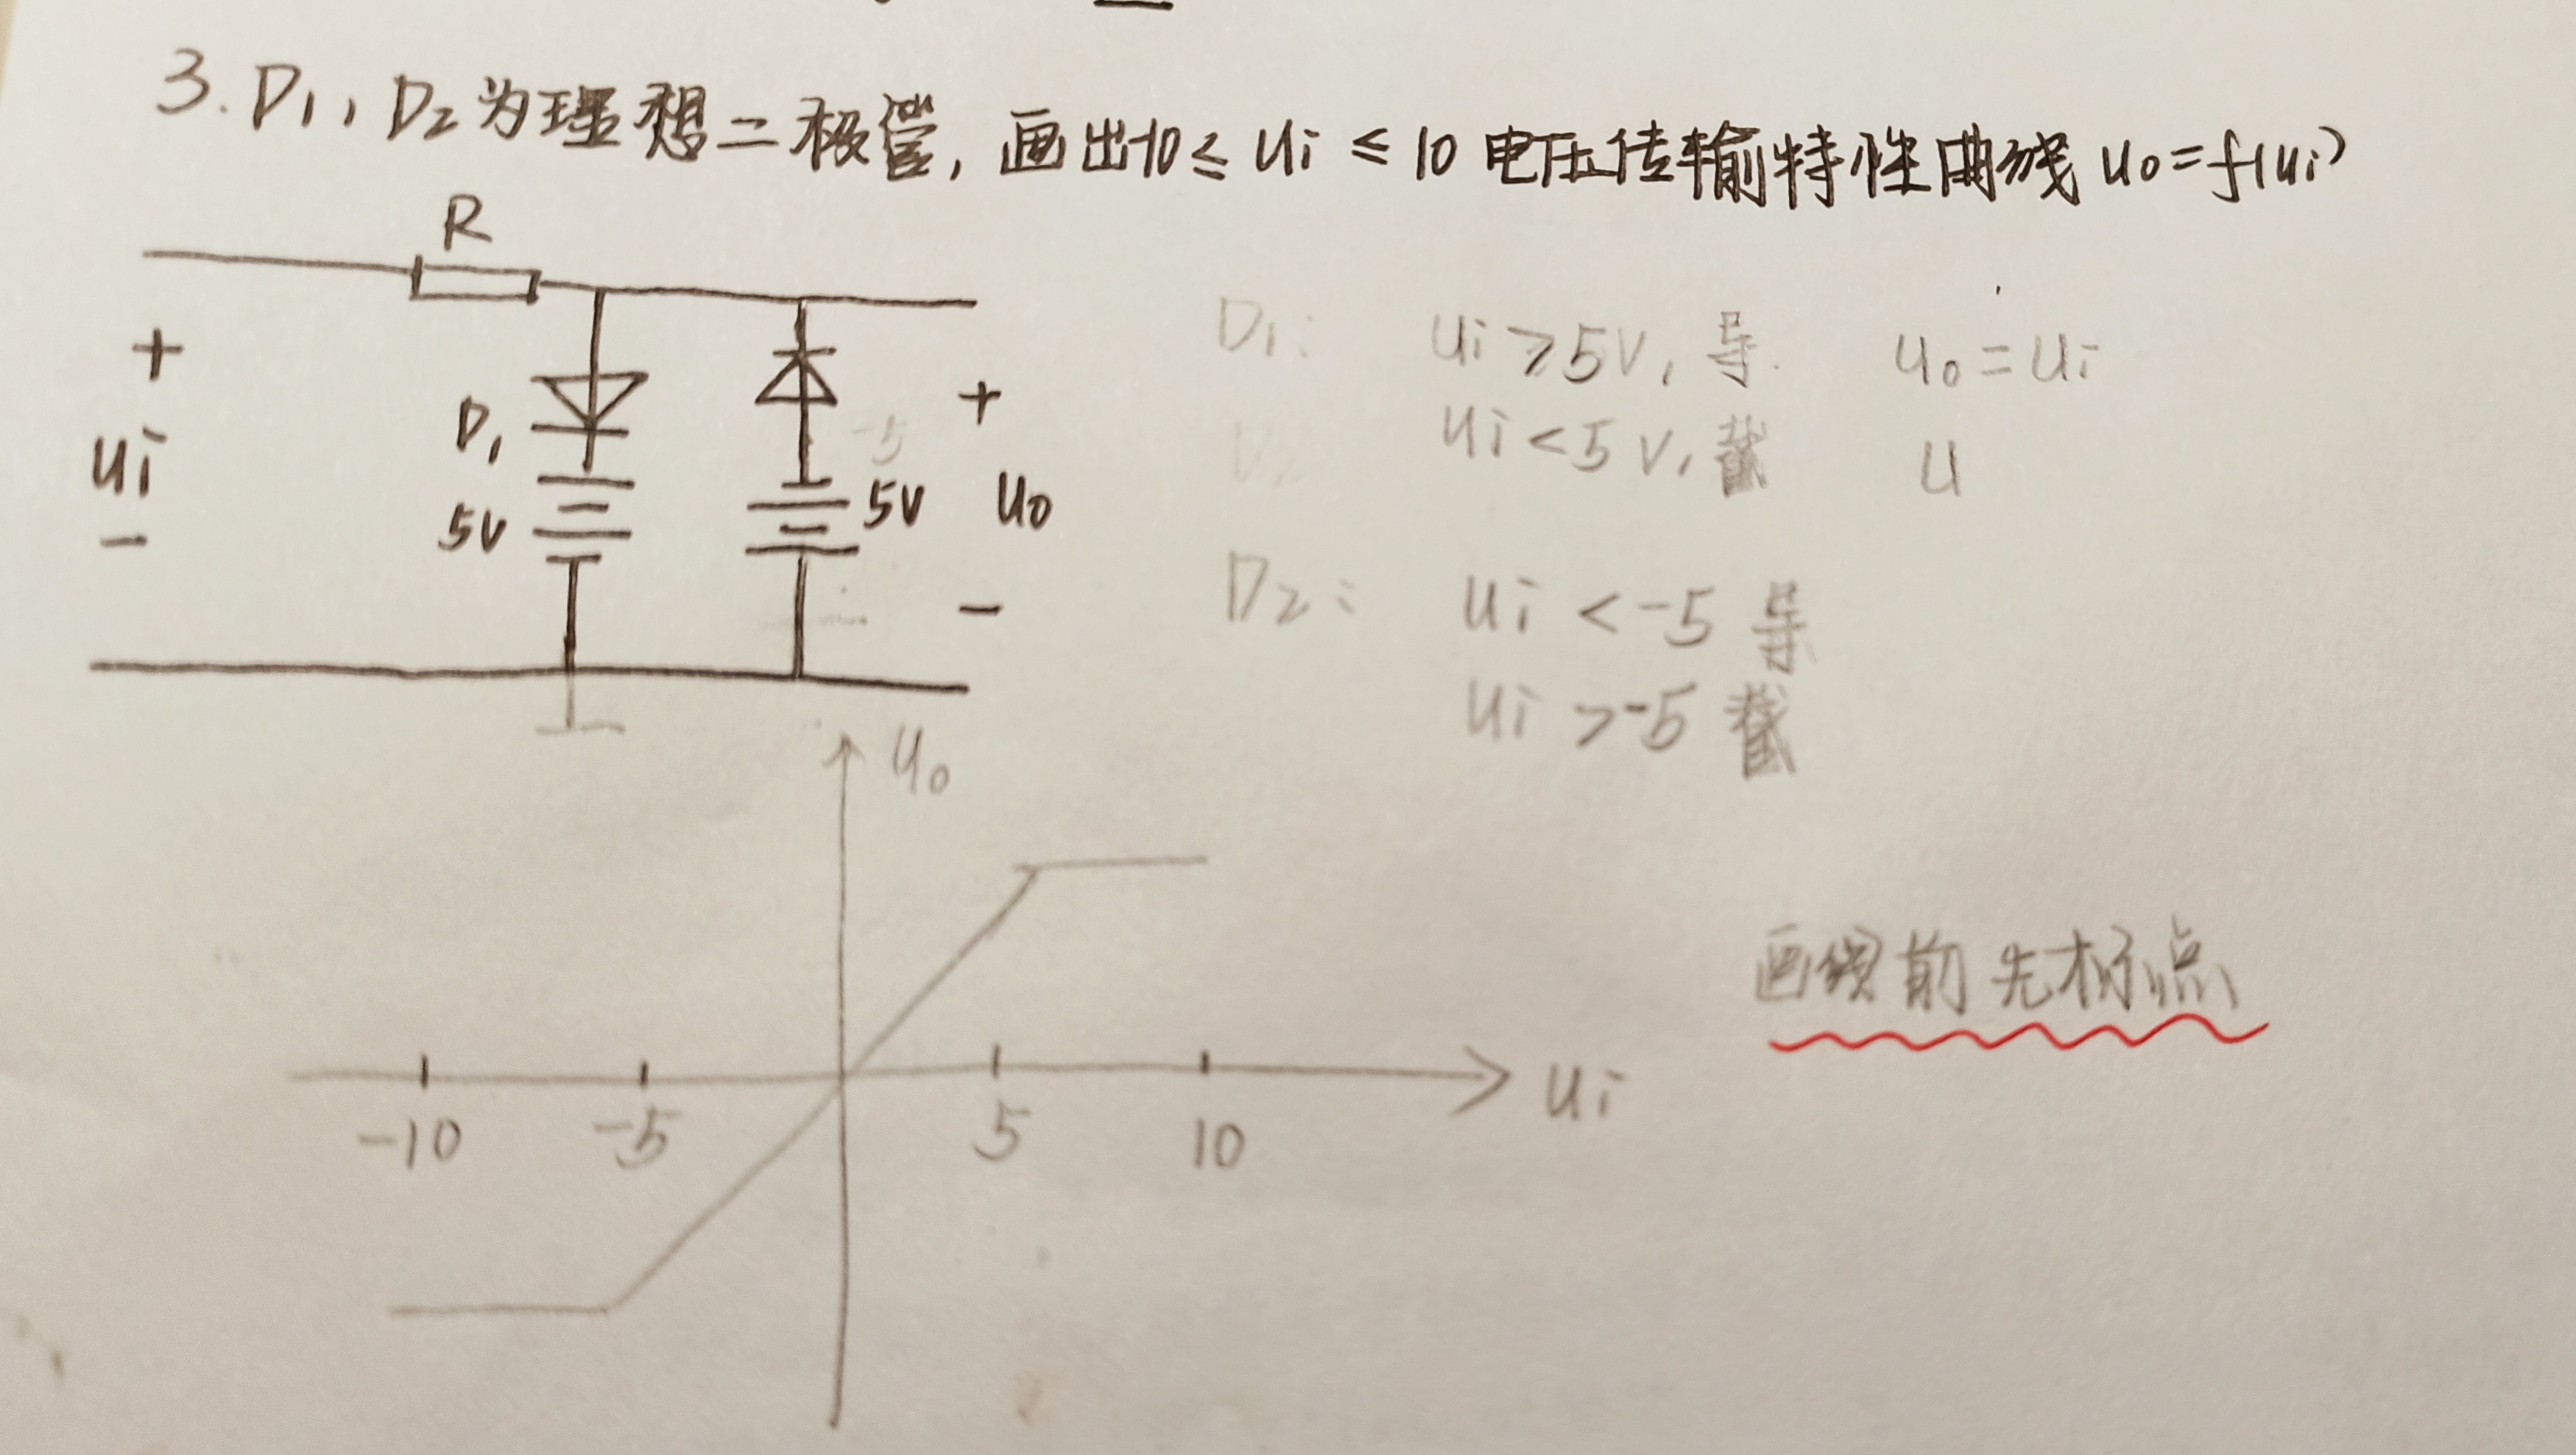 3. D1, D2为理想二极管, 画出-10≤ Ui ≤10 电压传输特性曲线 uo=f(ui)
R
+
ui
-
D1
5V
-5
5V
+
uo
-
D1: ui≥5V, 导. uo=ui
D2 ui<5V, 截 U
D2: ui<-5 导
ui>-5 截
uo
-10 -5 5 10 ui
画线前先标点